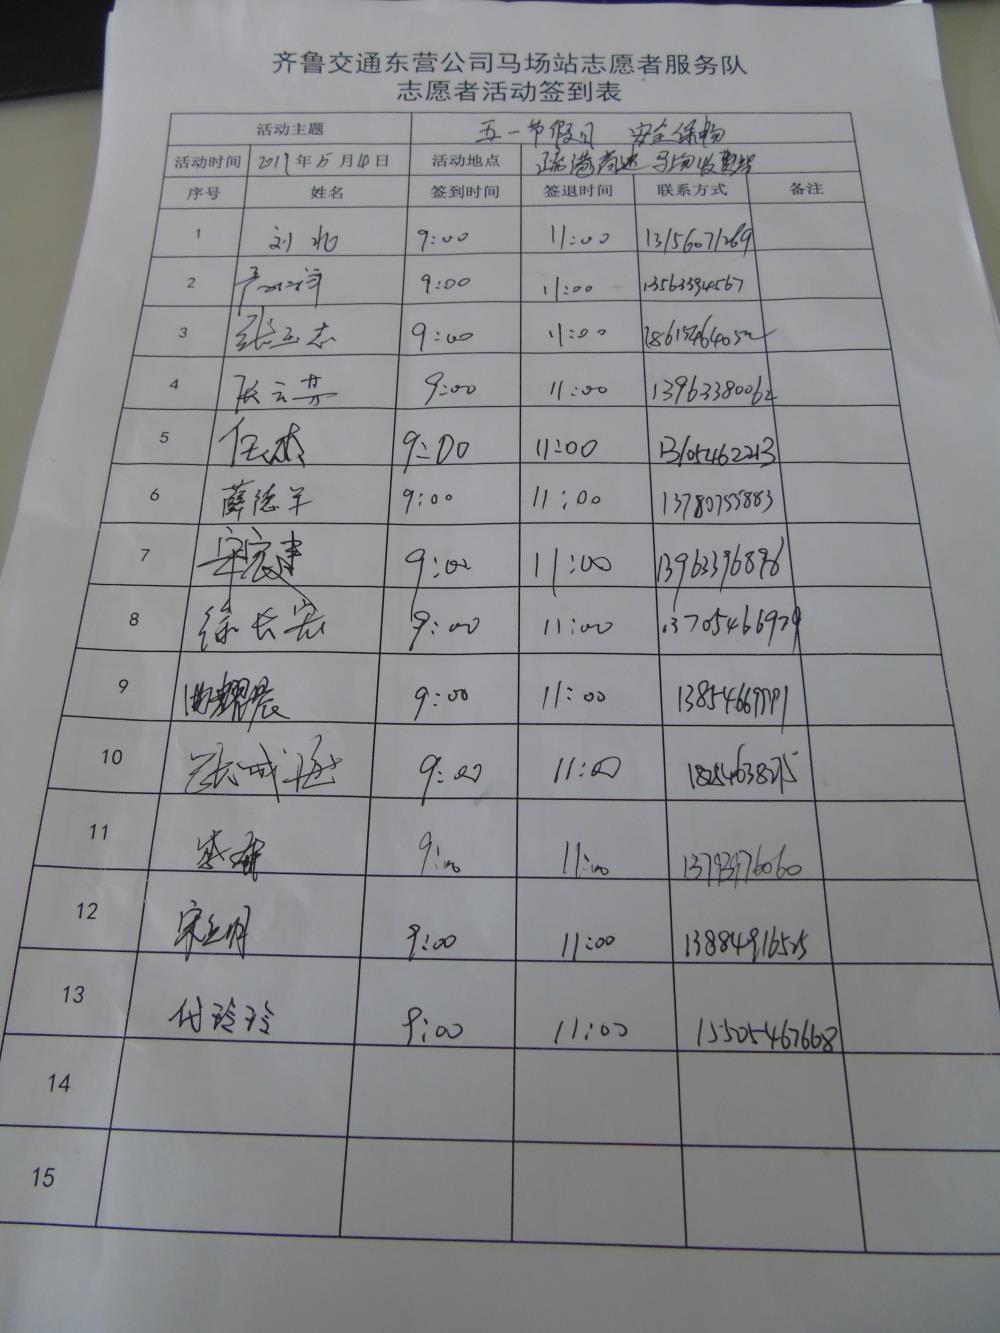 齐鲁交通东营公司马场站志愿者服务队
志愿者活动签到表
活动主题 五一节假日 安全保畅
活动时间 2019年5月4日 活动地点 疏港高速马场收费站
序号 姓名 签到时间 签退时间 联系方式 备注
1 刘 9:00 11:00 13156071269
2 9:00 11:00 13563394567
3 张玉志 9:00 11:00
4 张云芬 9:00 11:00 13963380062
5 任杰 9:00 11:00 13105462213
6 薛德军 9:00 11:00 13780755883
7 宋宸 9:00 11:00 13963396896
8 徐长宏 9:00 11:00 13705466979
9 曲耀晨 9:00 11:00
10 张 9:00 11:00
11 9:00 11:00 13793976060
12 宋立明 9:00 11:00 13884916525
13 付玲玲 9:00 11:00 15505467668
14
15